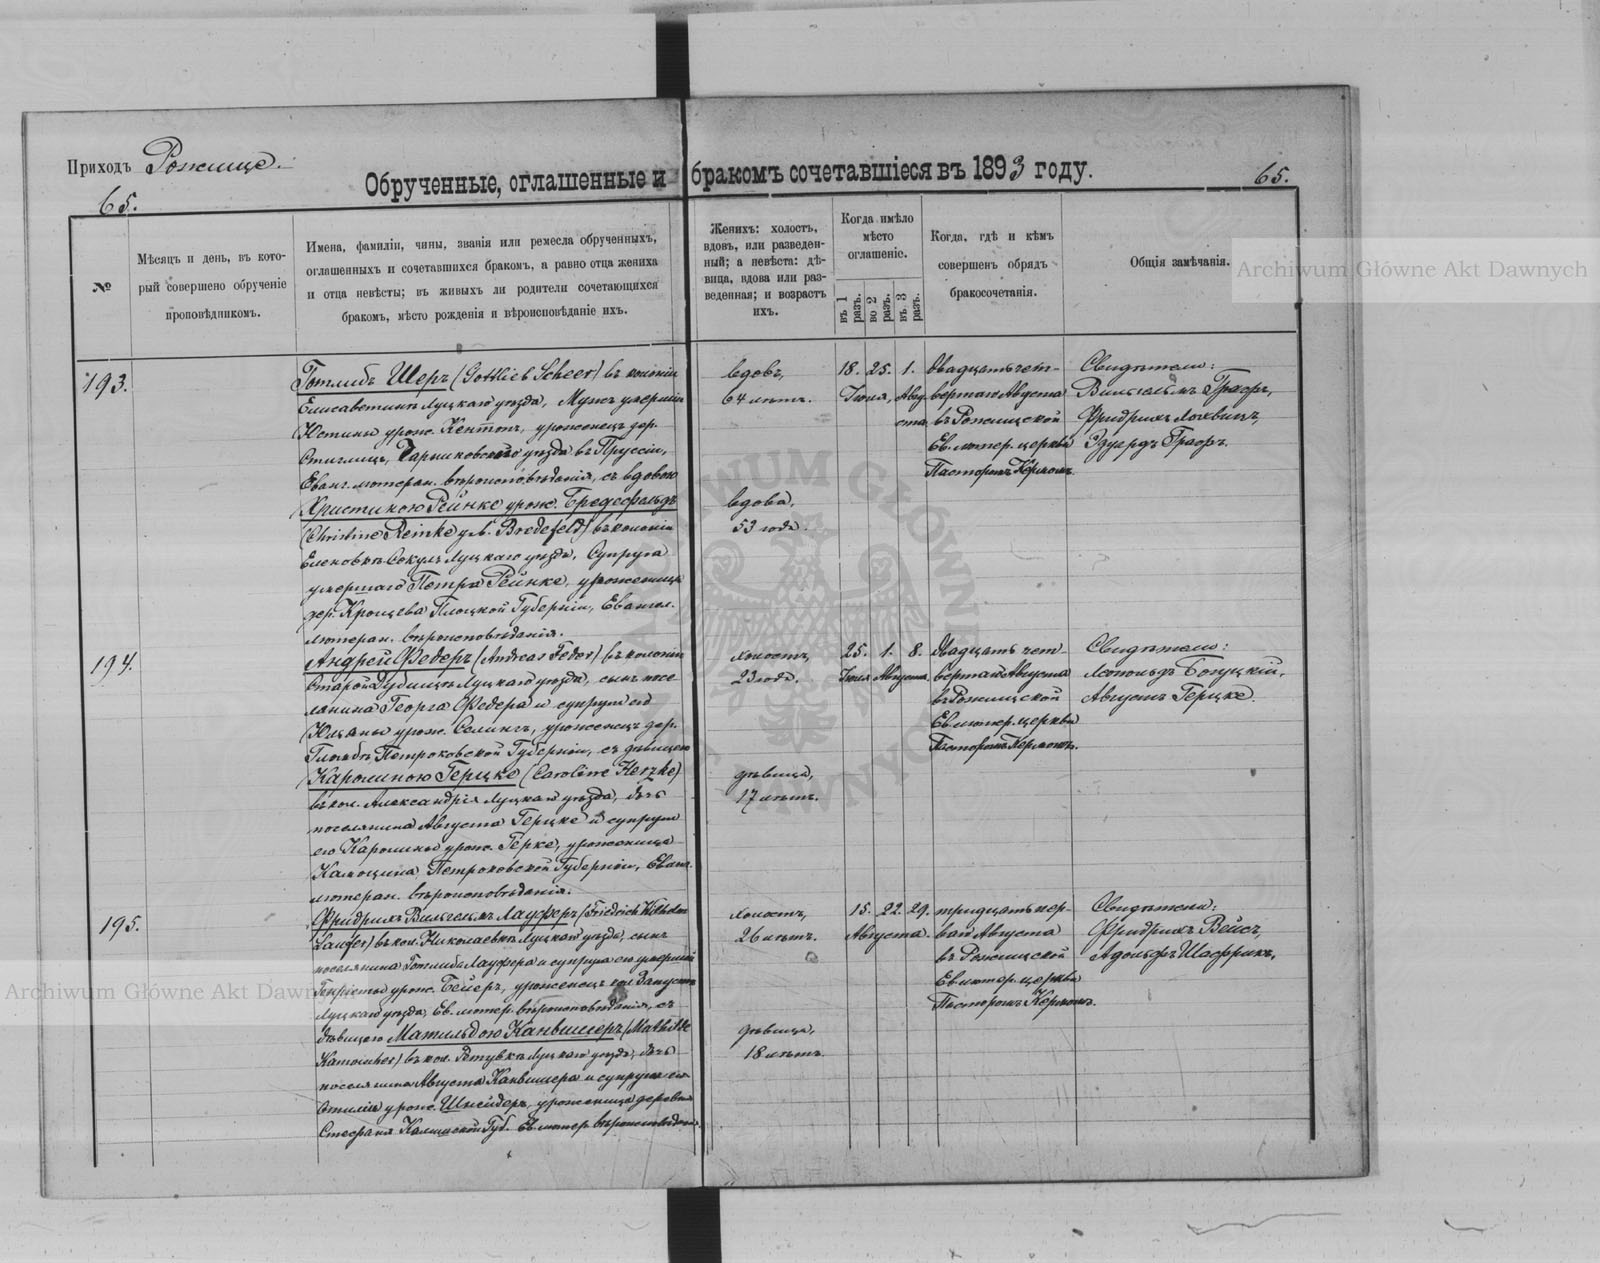 Приходъ Рожище.
65.
Обрученные, оглашенные и бракомъ сочетавшіеся въ 1893 году.
65.
№
Мѣсяцъ и день, въ кото-
рый совершено обрученіе
проповѣдникомъ.
Имена, фамиліи, чины, званія или ремесла обрученныхъ,
оглашенныхъ и сочетавшихся бракомъ, а равно отца жениха
и отца невѣсты; въ живыхъ ли родители сочетающихся
бракомъ, мѣсто рожденія и вѣроисповѣданіе ихъ.
Женихъ: холостъ,
вдовъ, или разведен-
ный; а невѣста: дѣ-
вица, вдова или раз-
веденная; и возрастъ
ихъ.
Когда имѣло
мѣсто
оглашеніе.
въ 1 разъ.
во 2 разъ.
въ 3 разъ.
Когда, гдѣ и кѣмъ
совершенъ обрядъ
бракосочетанія.
Общія замѣчанія.
Archiwum Główne Akt Dawnych
193.
Готлибъ Шеръ (Gottlieb Scheer) въ колоніи
Елисаветинъ Луцкаго уѣзда, Мужъ умершей
Юстины урож. Кентопъ, уроженецъ дер.
Стиглицъ, Чарниковскаго уѣзда въ Пруссіи,
Еванг. лютеран. вѣроисповѣданія, съ вдовою
Христиною Рейнке урож. Бредефельдъ
(Christine Reinke Bredefeld) въ колоніи
Еленовкѣ Сокулъ Луцкаго уѣзда, Супруга
умершаго Петра Рейнке, уроженица
дер. Кроцева Плоцкой Губерніи, Евангел.
лютеран. вѣроисповѣданія.
вдовъ,
64 лѣтъ.
вдова,
53 года.
18. 25. 1.
Іюля, Авгу
ста
двадцать чет-
вертаго Августа
въ Рожищской
Ев. лютер. церкви
Пасторомъ Кермомъ.
Свидѣтели:
Вильгельмъ Графъ,
Фридрихъ Лохвицъ,
Эдуардъ Графъ.
194.
Андрей Федеръ (Andreas Feder) въ колоніи
Старой Дубищѣ Луцкаго уѣзда, сынъ посе
лянина Георга Федера и супруги его
Юліаны урож. Селингъ, уроженецъ дер.
Петроковской Губерніи, съ дѣвицею
Каролиною Герцке (Caroline Herzke)
въ кол. Александрія Луцкаго уѣзда, дочь
поселянина Августа Герцке и супруги
его Каролины урож. Герке, уроженица
Камоцина, Петроковской Губерніи, Еванг.
лютеран. вѣроисповѣданія.
холостъ,
23 года.
дѣвица,
17 лѣтъ.
25. 1. 8.
Іюля Августа.
двадцать чет-
вертаго Августа
въ Рожищской
Ев. лютер. церкви
Пасторомъ Кермомъ.
Свидѣтели:
Леопольдъ Богуцкій,
Августъ Герцке.
195.
Фридрихъ Вильгельмъ Лауферъ (Friedrich Wilhelm
Laufer) въ кол. Николаевкѣ Луцкаго уѣзда, сынъ
поселянина Готлиба Лауфера и супруги его умершей
урож. Бейеръ, уроженецъ кол. Запустъ
Луцкаго уѣзда, Ев. лютер. вѣроисповѣданія, съ
дѣвицею Матильдою Канвишеръ (Mathilde
Kanwischer) въ кол. Луцкаго уѣзда, дочь
поселянина Августа Канвишера и супруги его
урож. Шнейдеръ, уроженица деревни
Стефаня Калишской Губ. Ев. лютер. вѣроисповѣданія.
холостъ,
26 лѣтъ.
дѣвица,
18 лѣтъ.
15. 22. 29.
Августа.
тридцать пер-
ваго Августа
въ Рожищской
Ев. лютер. церкви
Пасторомъ Кермомъ.
Свидѣтели:
Фридрихъ Вейсъ,
Адольфъ Шафрикъ.
Archiwum Główne Akt Dawnych
ARCHIWUM GŁÓWNE AKT DAWNYCH